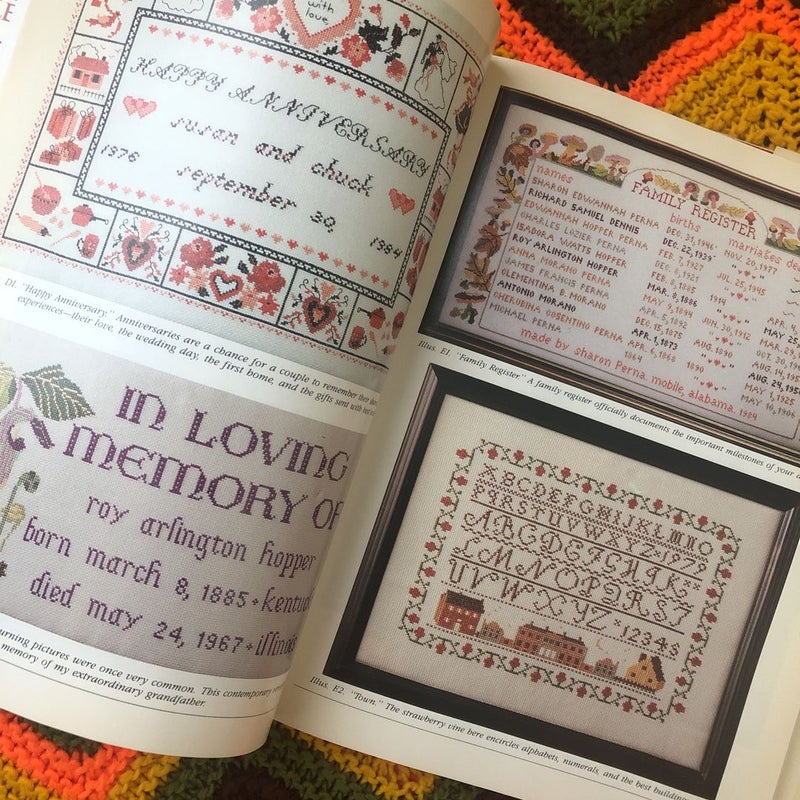 with love
HAPPY ANNIVERSARY
susan and chuck
1976
september 30,
1984
D1. "Happy Anniversary." Anniversaries are a chance for a couple to remember their
experiences—their love, the wedding day, the first home, and the gifts sent with
IN LOVING
MEMORY OF
roy arlington hopper
born march 8, 1885 + kentu
died may 24, 1967 + illinois
urning pictures were once very common. This contemporary
memory of my extraordinary grandfather.
FAMILY REGISTER
names
births
marriages
SHARON EDWANNAH PERNA
DEC. 31, 1946
NOV. 20, 1977
RICHARD SAMUEL DENNIS
DEC. 22, 1939
EDWANNAH HOPPER PERNA
FEB. 7, 1927
JUL. 25, 1945
CHARLES LOZIER PERNA
DEC. 6, 1921
ISADORA WATTS HOPPER
FEB. 8, 1885
1914
ROY ARLINGTON HOPPER
MAR. 8, 1885
ANNA MORANO PERNA
MAY 5, 1894
JUN. 30, 1912
JAMES FRANCIS PERNA
APR. 5, 1892
CLEMENTINA B. MORANO
DEC. 15, 1875
AUG. 1890
ANTONIO MORANO
APR. 1, 1873
CHERUBINA COSENTINO PERNA
APR. 6, 1868
1890
MICHAEL PERNA
1864
MAY 1, 1925
MAY 10, 1906
made by sharon perna. mobile, alabama. 1984
Illus. E1. "Family Register." A family register officially documents the important milestones of your
ABCDEFGHIJKLMNO
PQRSTUVWXYZ
ABCDEFGHIJK
LMNOPQRST
UVWXYZ
12345
Illus. E2. "Town." The strawberry vine here encircles alphabets, numerals, and the best building